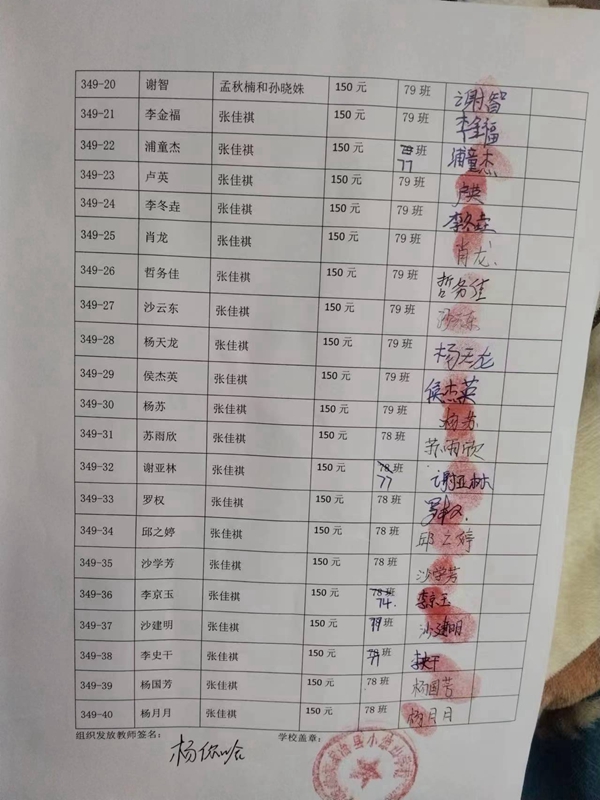 349-20 谢智 孟秋楠和孙晓姝 150 元 79 班 谢智
349-21 李金福 张佳祺 150 元 79 班 李金福
349-22 浦童杰 张佳祺 150 元 班 77 浦童杰
349-23 卢英 张佳祺 150 元 79 班 卢英
349-24 李冬垚 张佳祺 150 元 79 班 李冬垚
349-25 肖龙 张佳祺 150 元 79 班 肖龙.
349-26 哲务佳 张佳祺 150 元 79 班 哲务佳
349-27 沙云东 张佳祺 150 元 79 班 沙云东
349-28 杨天龙 张佳祺 150 元 79 班 杨天龙
349-29 侯杰英 张佳祺 150 元 79 班 侯杰英
349-30 杨苏 张佳祺 150 元 78 班 杨苏
349-31 苏雨欣 张佳祺 150 元 78 班 苏雨欣
349-32 谢亚林 张佳祺 150 元 78 班 77 谢亚林
349-33 罗权 张佳祺 150 元 78 班 罗权.
349-34 邱之婷 张佳祺 150 元 78 班 邱之婷
349-35 沙学芳 张佳祺 150 元 78 班 沙学芳
349-36 李京玉 张佳祺 150 元 78 班 74. 李京玉
349-37 沙建明 张佳祺 150 元 班 沙建明
349-38 李史干 张佳祺 150 元 班 李史干
349-39 杨国芳 张佳祺 150 元 78 班 杨国芳
349-40 杨月月 张佳祺 150 元 78 班 杨月月
组织发放教师签名： 学校盖章：